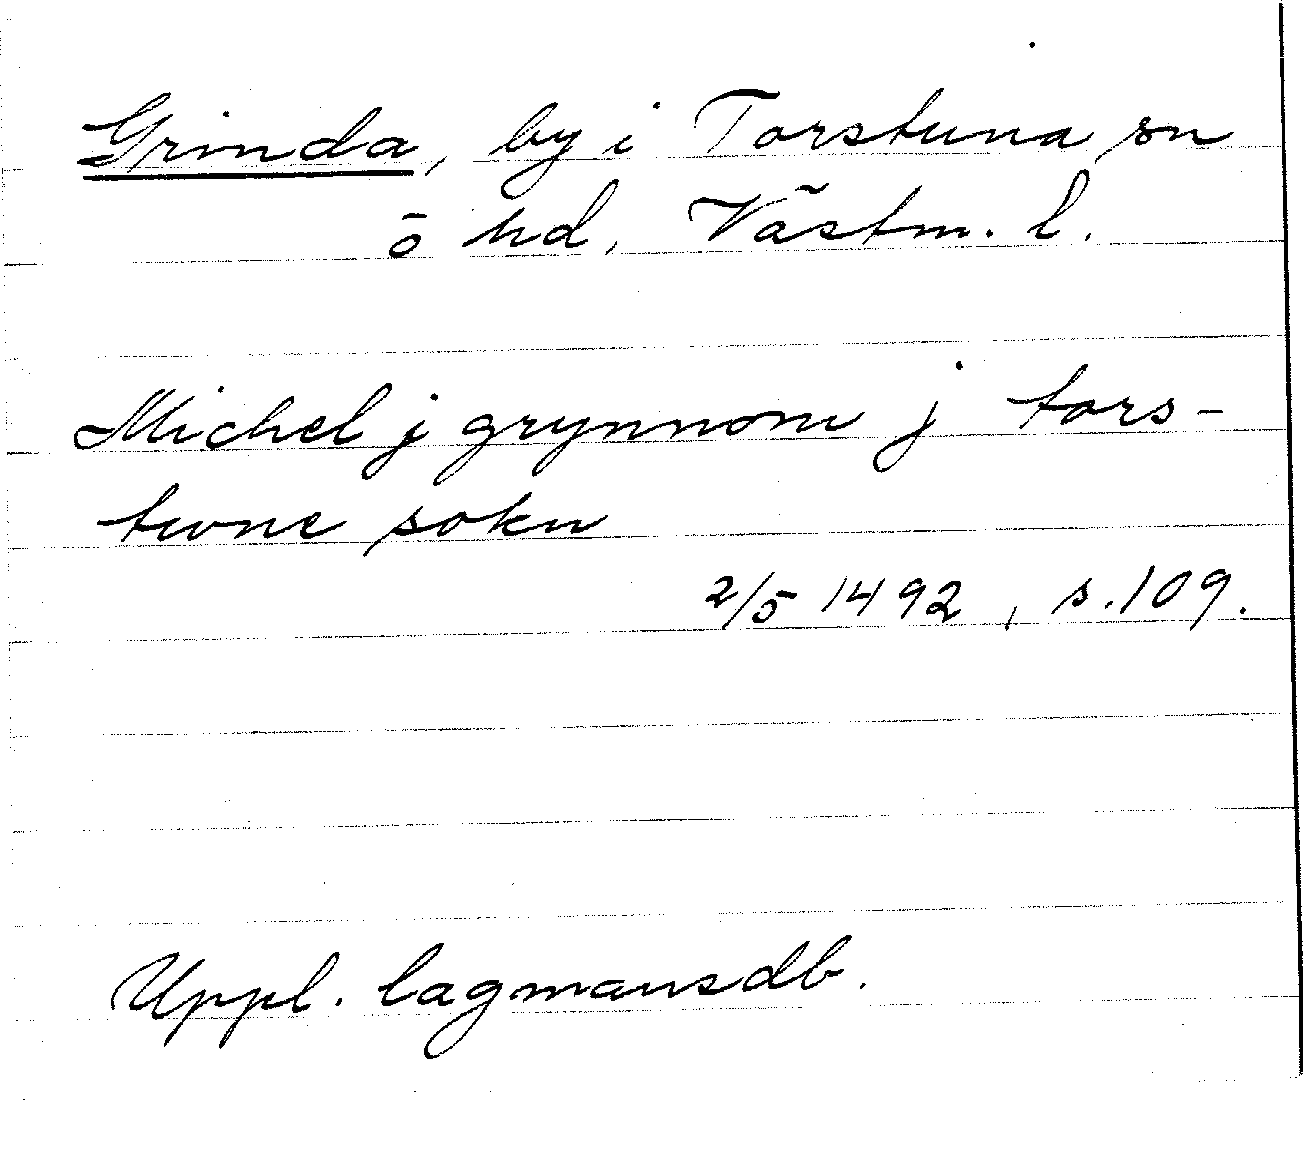 Grinda, by i Torstuna sn
o hd, Västm. l.
Michel j grynnom j tors-
twne sokn
2/5 1492, s. 109.
Uppl. lagmansdb.